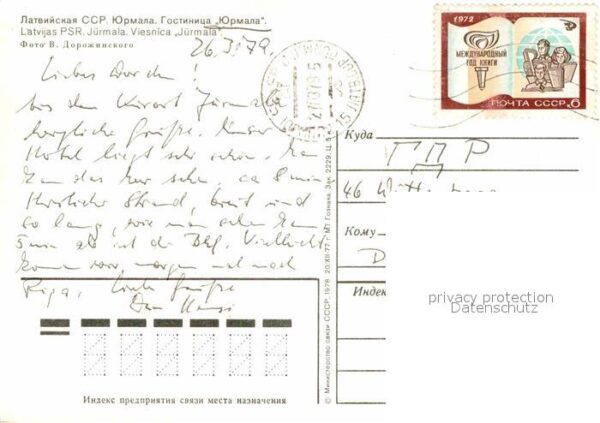 Латвийская ССР. Юрмала. Гостиница „Юрмала“.
Latvijas PSR. Jūrmala. Viesnīca „Jūrmala“.
Фото В. Дорожинского
1972
МЕЖДУНАРОДНЫЙ
ГОД КНИГИ
ПОЧТА СССР 6
Liebes
aus dem Kurort Jūrmala
herzliche Grüße. Unser
Hotel liegt sehr schön. Man
kann das Meer sehen, ca 8 min
Herrlicher Strand, breit und
so lang, wie man sehen kann
5 min ab ist der Bhf. Vielleicht
kommen wir morgen mal nach
Riga. Liebe Grüße
Куда
ГДР
46
Кому
D
Индекс
privacy protection
Datenschutz
Индекс предприятия связи места назначения
© Министерство связи СССР. 1978 20/XII-77 г. МТ Гознака. Зак. 2229. Ц. 5 к.